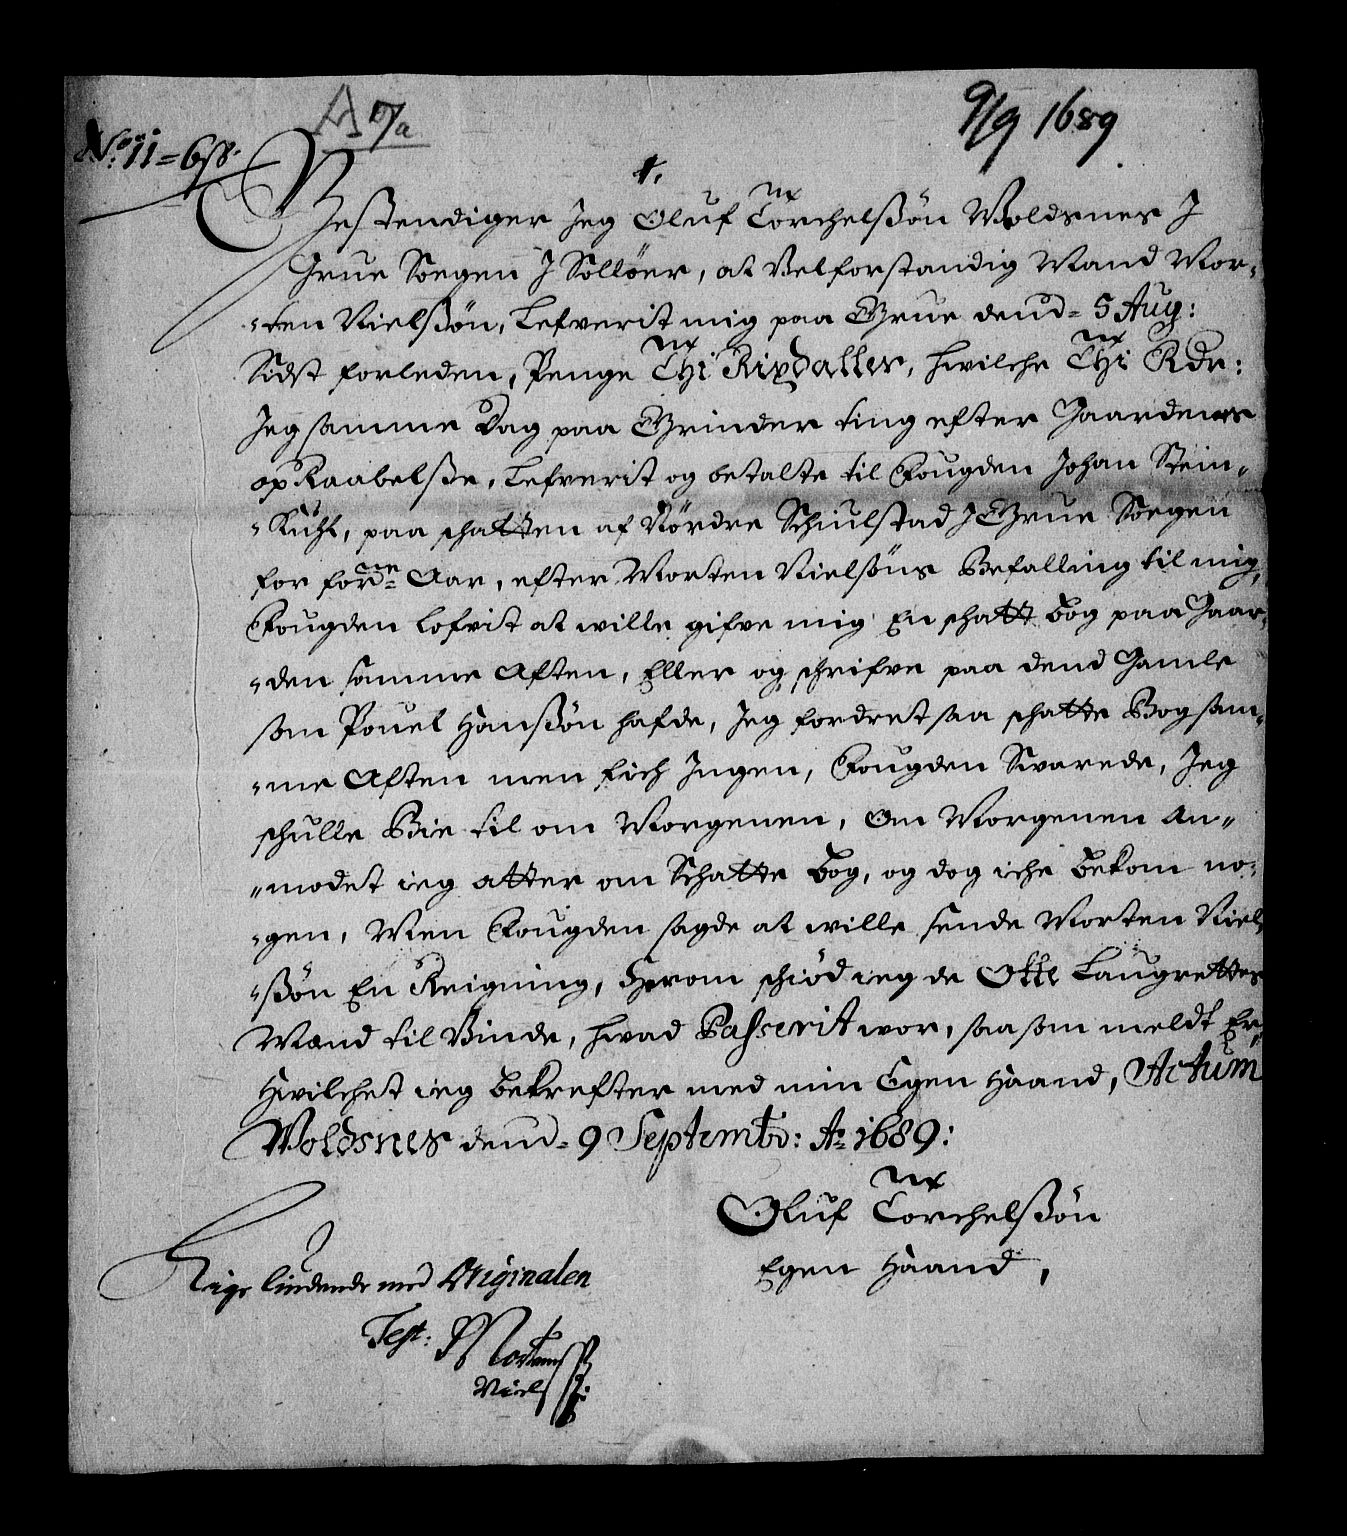 A 17/a
9/9 1689
No: 11 = 6 ß.
1.
Gestendiger Jeg Oluf Torchelßøn Woldsnes J
Grue Soegen J Solløer, at Velforstandig Mand Mor-
-ten Nielßøn, Lefverit mig paa Grue dend= 5 Aug:
Sidst forleden, Penge Thi Rixdaller, hvilche Thi Rdr:
Jeg samme Dag paa Grinder ting efter Gaardenes
op Raabelße, Lefverit og betalte til Fougden Johan Stein-
-Kuhl, paa schatten af Nordre Schiulstad J Grue Soegen
for forne Aar, efter Morten Nielsøns Befalling til mig,
Fougden lofvit at wille gifve mig En schatt Bog paa Gaar-
-den samme Aften, Eller og schrifve paa dend Gamle
som Pouel Hanßøn hafde, Jeg fordret saa schatte Bog sam-
-me Aften men fich Jngen, Fougden Svarede, Jeg
schulle Bie til om Morgenen, Om Morgenen An-
-modet ieg atter om Schatte Bog, og dog iche Bekom no-
-gen, Men Fougden sagde at wille sende Morten Niel-
-ßøn En Reigning, Herom schiød ieg de Otte Laugrettes
Mænd til Vinde, hvad Passerit wor, saa som meldt Er,
Hvilchet ieg Bekrefter med min Egen Haand, Actum
Woldsnes dend= 9 Septembr: Ao 1689:
Oluf Torchelßøn
Egen Haand,
Lige liudende med Originalen
Test: Mortenn
Nielß: